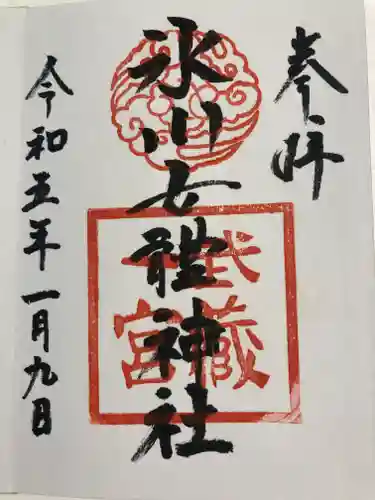 奉拝
氷川女體神社
武蔵
一宮
令和五年一月九日